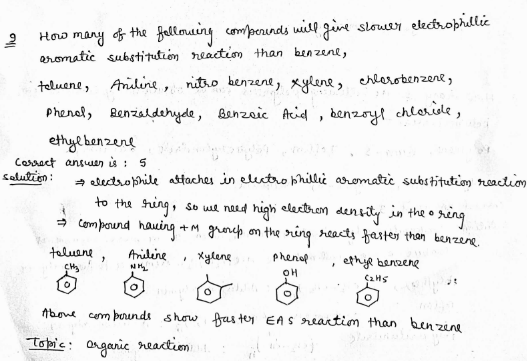 9 How many of the following compounds will give slower electrophillic
aromatic substitution reaction than benzene,
toluene, Aniline, nitro benzene, xylene, chlorobenzene,
Phenol, Benzaldehyde, Benzoic Acid, benzoyl chloride,
ethyl benzene
Correct answer is : 5
Solution: ⇒ electrophile attaches in electrophillic aromatic substitution reaction
to the ring, so we need high electron density in the ring
⇒ Compound having +M group on the ring reacts faster than benzene.
toluene, Aniline, xylene phenol, ethyl benzene
CH3 NH2 OH C2H5
Above compounds show faster EAS reaction than benzene
Topic: organic reaction